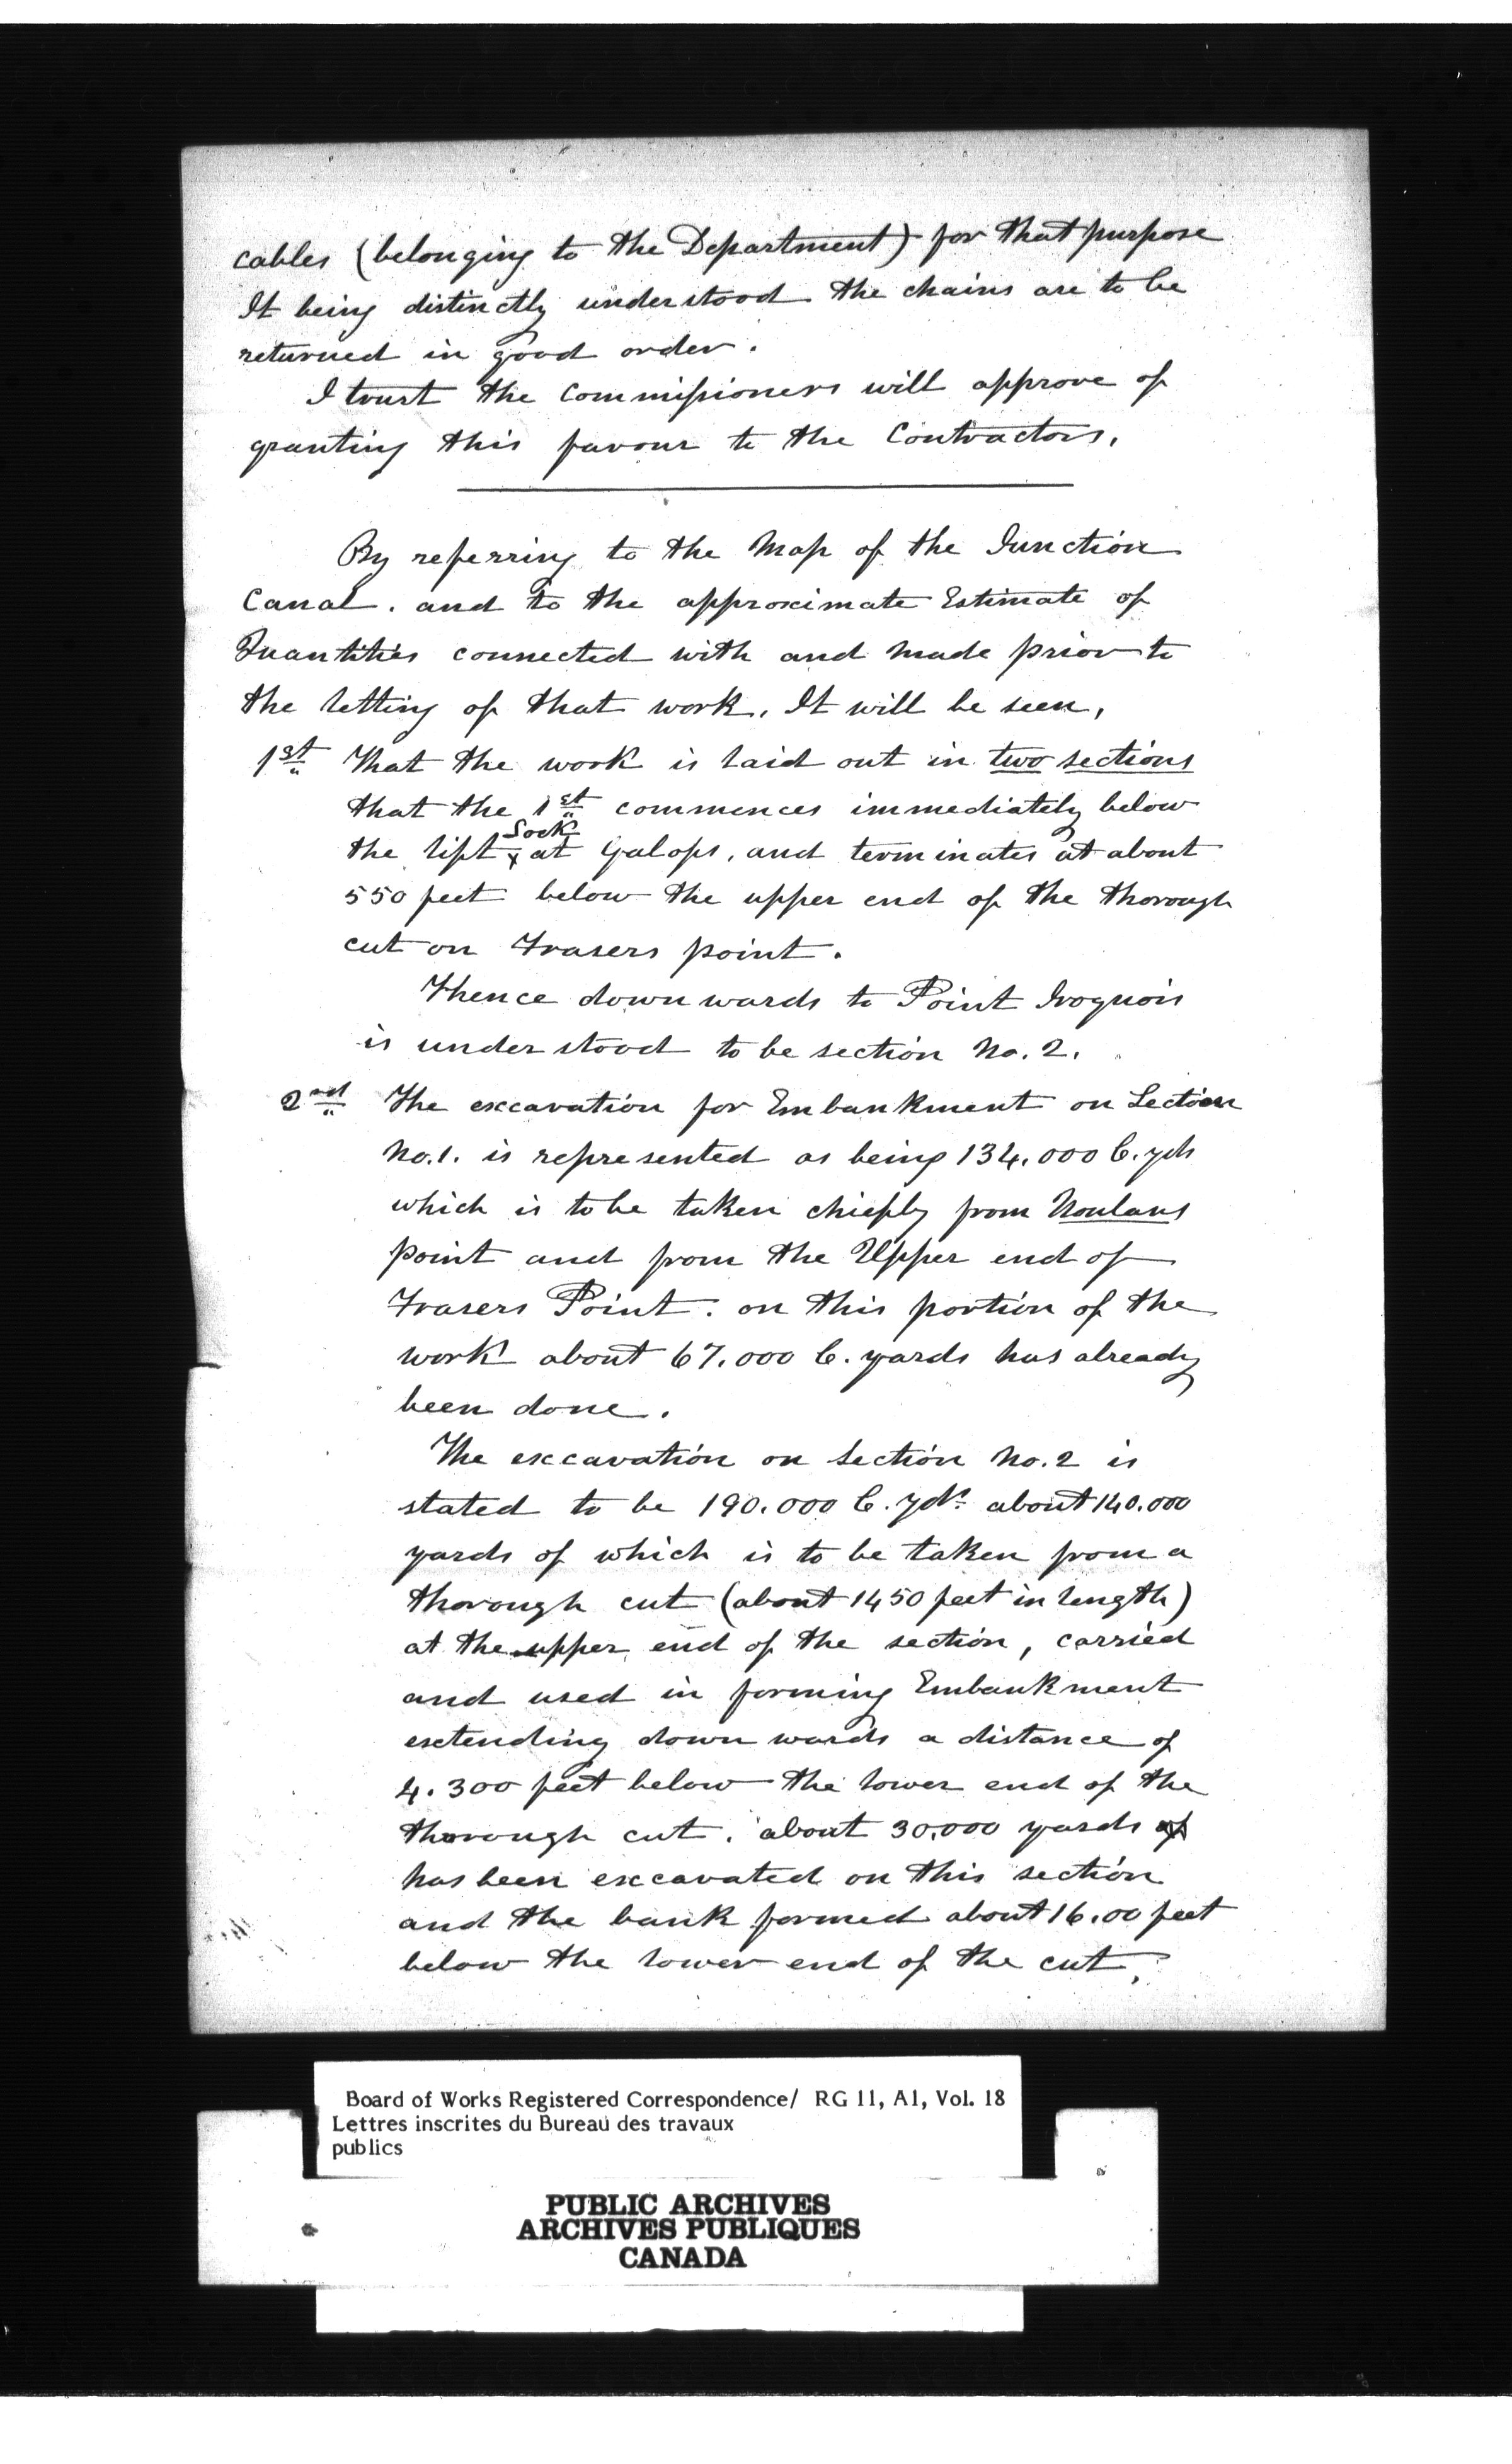 cables (belonging to the Department) for that purpose
It being distinctly understood the chains are to be
returned in good order.
I trust the Commissioners will approve of
granting this favour to the Contractors.
By referring to the Map of the Junction
Canal. and to the approximate Estimate of
Quantities connected with and made prior to
the letting of that work. It will be seen,
1st That the work is laid out in two sections
that the 1st commences immediately below
Lock
the lift x at Galops, and terminates at about
550 feet below the upper end of the thorough
cut on Frasers point.
Thence downwards to Point Iroquois
is understood to be section No. 2.
2nd The excavation for Embankment on Section
No. 1. is represented as being 134.000 C. yds
which is to be taken chiefly from Noulans
point and from the Upper end of
Frasers Point. on this portion of the
work about 67.000 C. yards has already
been done.
The excavation on Section No. 2 is
stated to be 190.000 C. yds. about 140.000
yards of which is to be taken from a
thorough cut (about 1450 feet in length)
at the upper end of the section, carried
and used in forming Embankment
extending downwards a distance of
4.300 feet below the lower end of the
thorough cut. about 30.000 yards of
has been excavated on this section
and the bank formed about 16.00 feet
below the lower end of the cut.
Board of Works Registered Correspondence/ RG 11, A1, Vol. 18
Lettres inscrites du Bureau des travaux
publics
PUBLIC ARCHIVES
ARCHIVES PUBLIQUES
CANADA